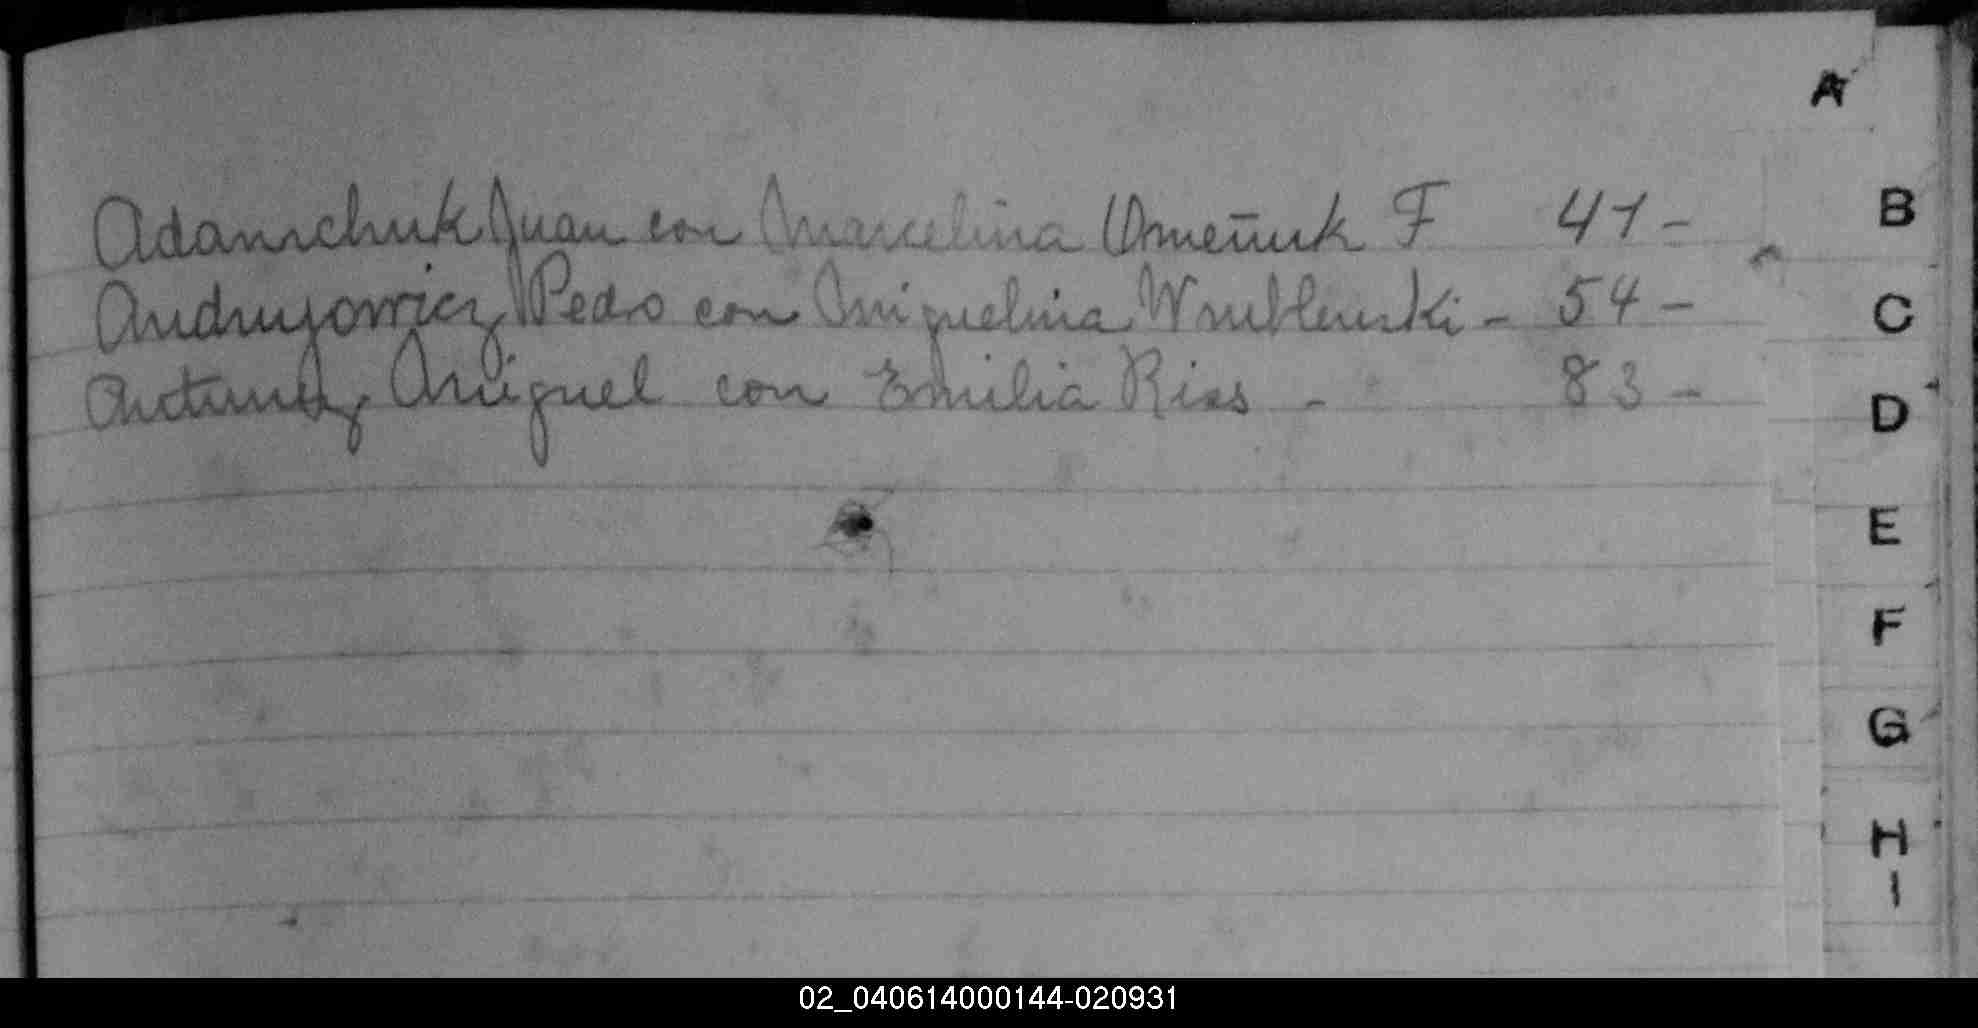 A
Adamchuk Juan con Marcelina Omeñuk F 41-
Andruyowicz Pedro con Miguelina Wrublewski - 54-
Antunez Miguel con Emilia Rios - 83-
B
C
D
E
F
G
H
I
02_040614000144-020931